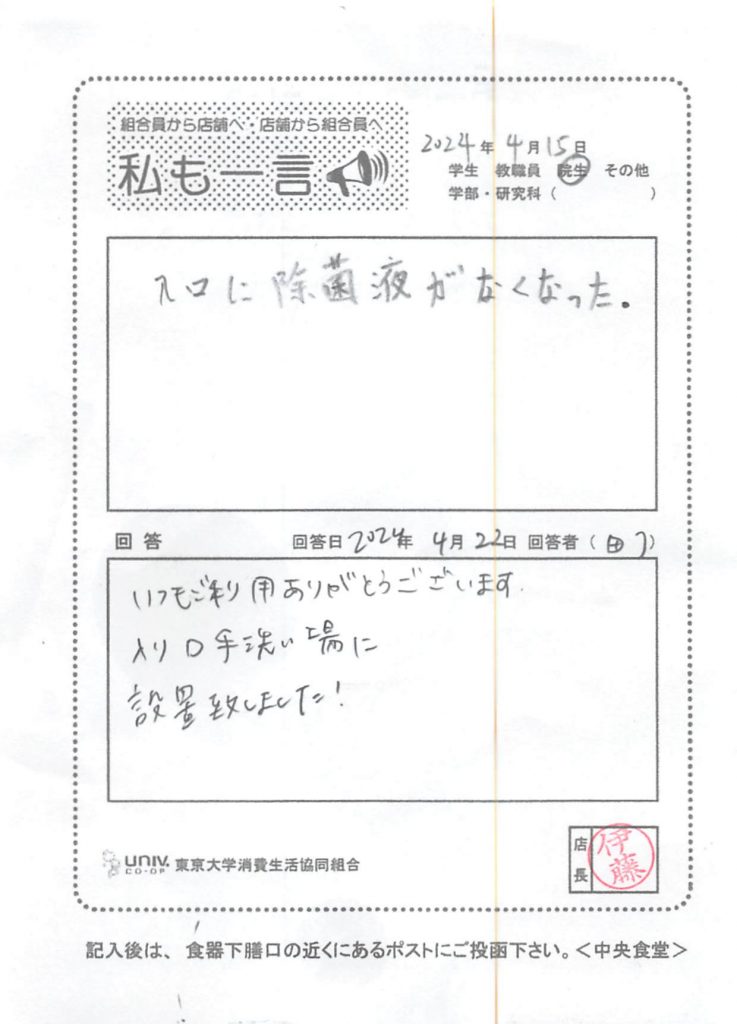 組合員から店舗へ・店舗から組合員へ
私も一言
2024年4月15日
学生 教職員 院生 その他
学部・研究科（ ）
入口に除菌液がなくなった。
回答 回答日 2024年 4月22日 回答者（ ）
いつもご利用ありがとうございます.
入り口手洗い場に
設置致しました!
UNIV. CO-OP 東京大学消費生活協同組合
店長 伊藤
記入後は、食器下膳口の近くにあるポストにご投函下さい。＜中央食堂＞